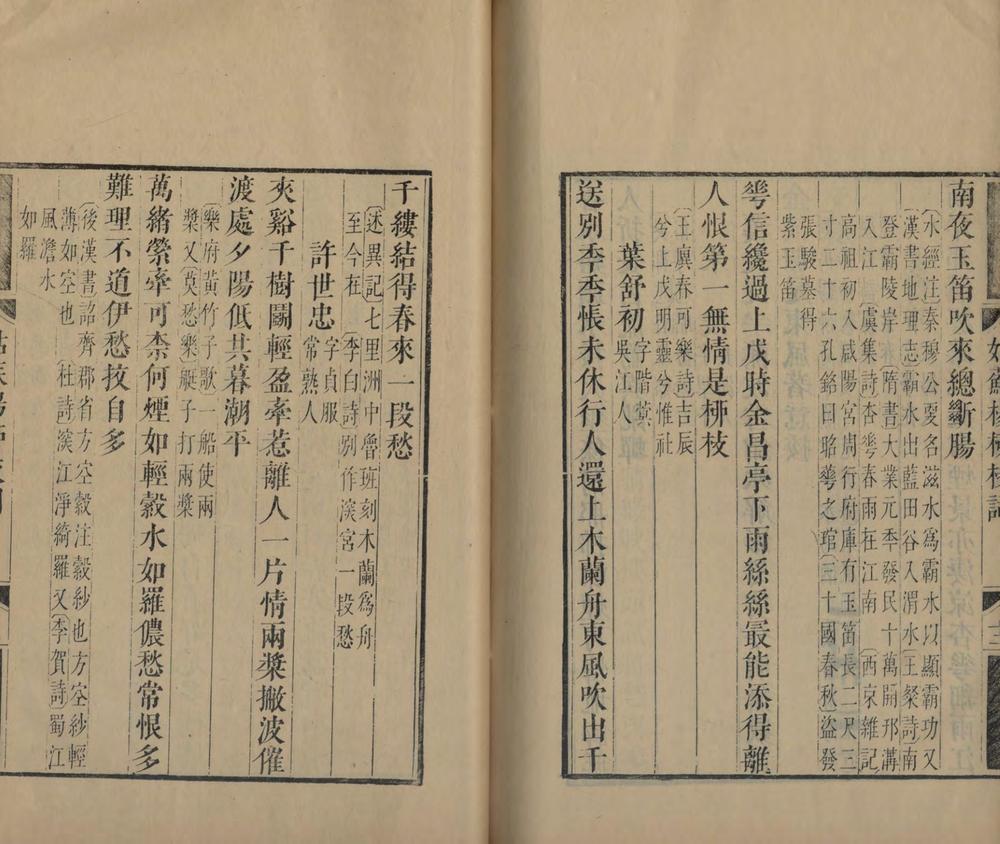 南夜玉笛吹來總斷腸
〔水經注〕秦穆公更名滋水爲霸水以顯霸功又
〔漢書地理志〕霸水出藍田谷入渭水〔王粲詩〕南
登霸陵岸〔隋書〕大業元季發民十萬開邗溝
入江〔虞集詩〕杏雩春雨在江南〔西京雜記〕
高祖初入咸陽宮周行府庫有玉笛長二尺三
寸二十六孔銘曰昭雩之琯〔三十國春秋〕盜發
張駿墓得
紫玉笛
雩信纔過上戊時金昌亭下雨絲絲最能添得離
人恨第一無情是桺枝
〔王廙春可樂詩〕吉辰
兮上戊明靈兮惟社
葉舒初字階蓂
吳江人
送別季季悵未休行人還上木蘭舟東風吹出千
千縷結得春來一段愁
〔述異記〕七里洲中魯班刻木蘭爲舟
至今在〔李白詩〕別作深宮一段愁
許世忠字貞服
常熟人
夾谿千樹鬭輕盈牽惹離人一片情兩槳撇波催
渡處夕陽低共暮潮平
〔樂府黃竹子歌〕一船使兩
槳又〔莫愁樂〕艇子打兩槳
萬緒縈牽可柰何煙如輕縠水如羅儂愁常恨多
難理不道伊愁挍自多
〔後漢書〕詔齊郡省方空縠注縠紗也方空紗輕
薄如空也〔杜詩〕深江淨綺羅又〔李賀詩〕蜀江
風澹水
如羅